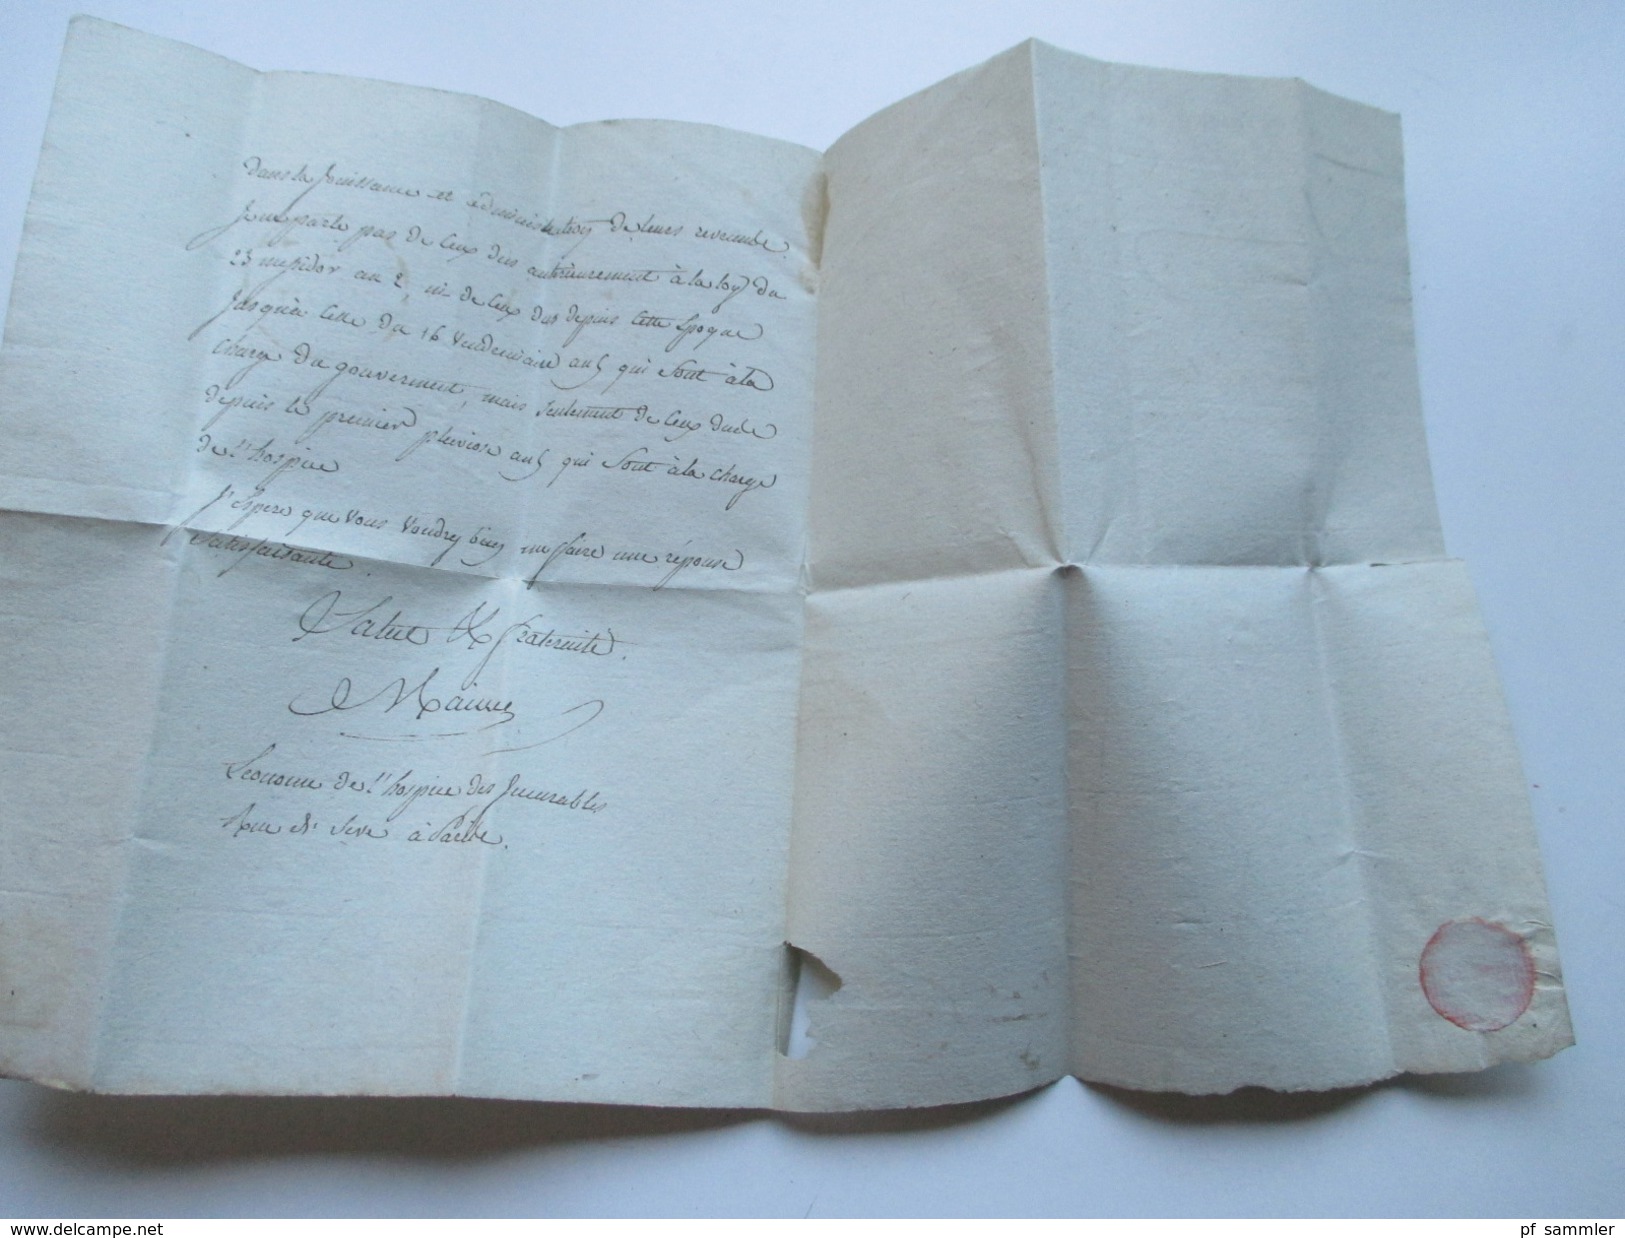 dans la jouissance et administration de leurs revenus.
Je ne parle pas de ceux dus antérieurement à la loy du
23 messidor an 2, ni de ceux dus depuis cette Epoque
Jusqu'à celle du 16 Vendemiaire an 5 qui sont à la
charge du gouvernement, mais seulement de ceux dus
depuis le premier pluviose an 5 qui sont à la charge
de l'hospice
J'Espere que vous voudrez bien me faire une réponse
satisfaisante.
Salut & fraternité.
L'econome de l'hospice des Incurables
Rue de Seve à Paris.
www.delcampe.net
pf_sammler